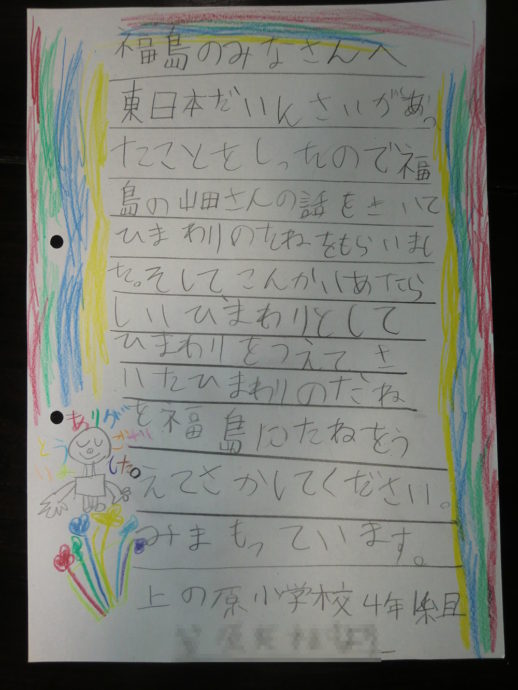 福島のみなさんへ
東日本だいんさいがあっ
たことをしったので福
島の山田さんの話をきいて
ひまわりのたねをもらいまし
た。そしてこんかいあたら
しいひまわりとして
ひまわりをつえてさ
いたひまわりのだね
を福島にたねをう
えてさかしてください。
みまもっています。
上の原小学校4年1組
ありがとうございました。